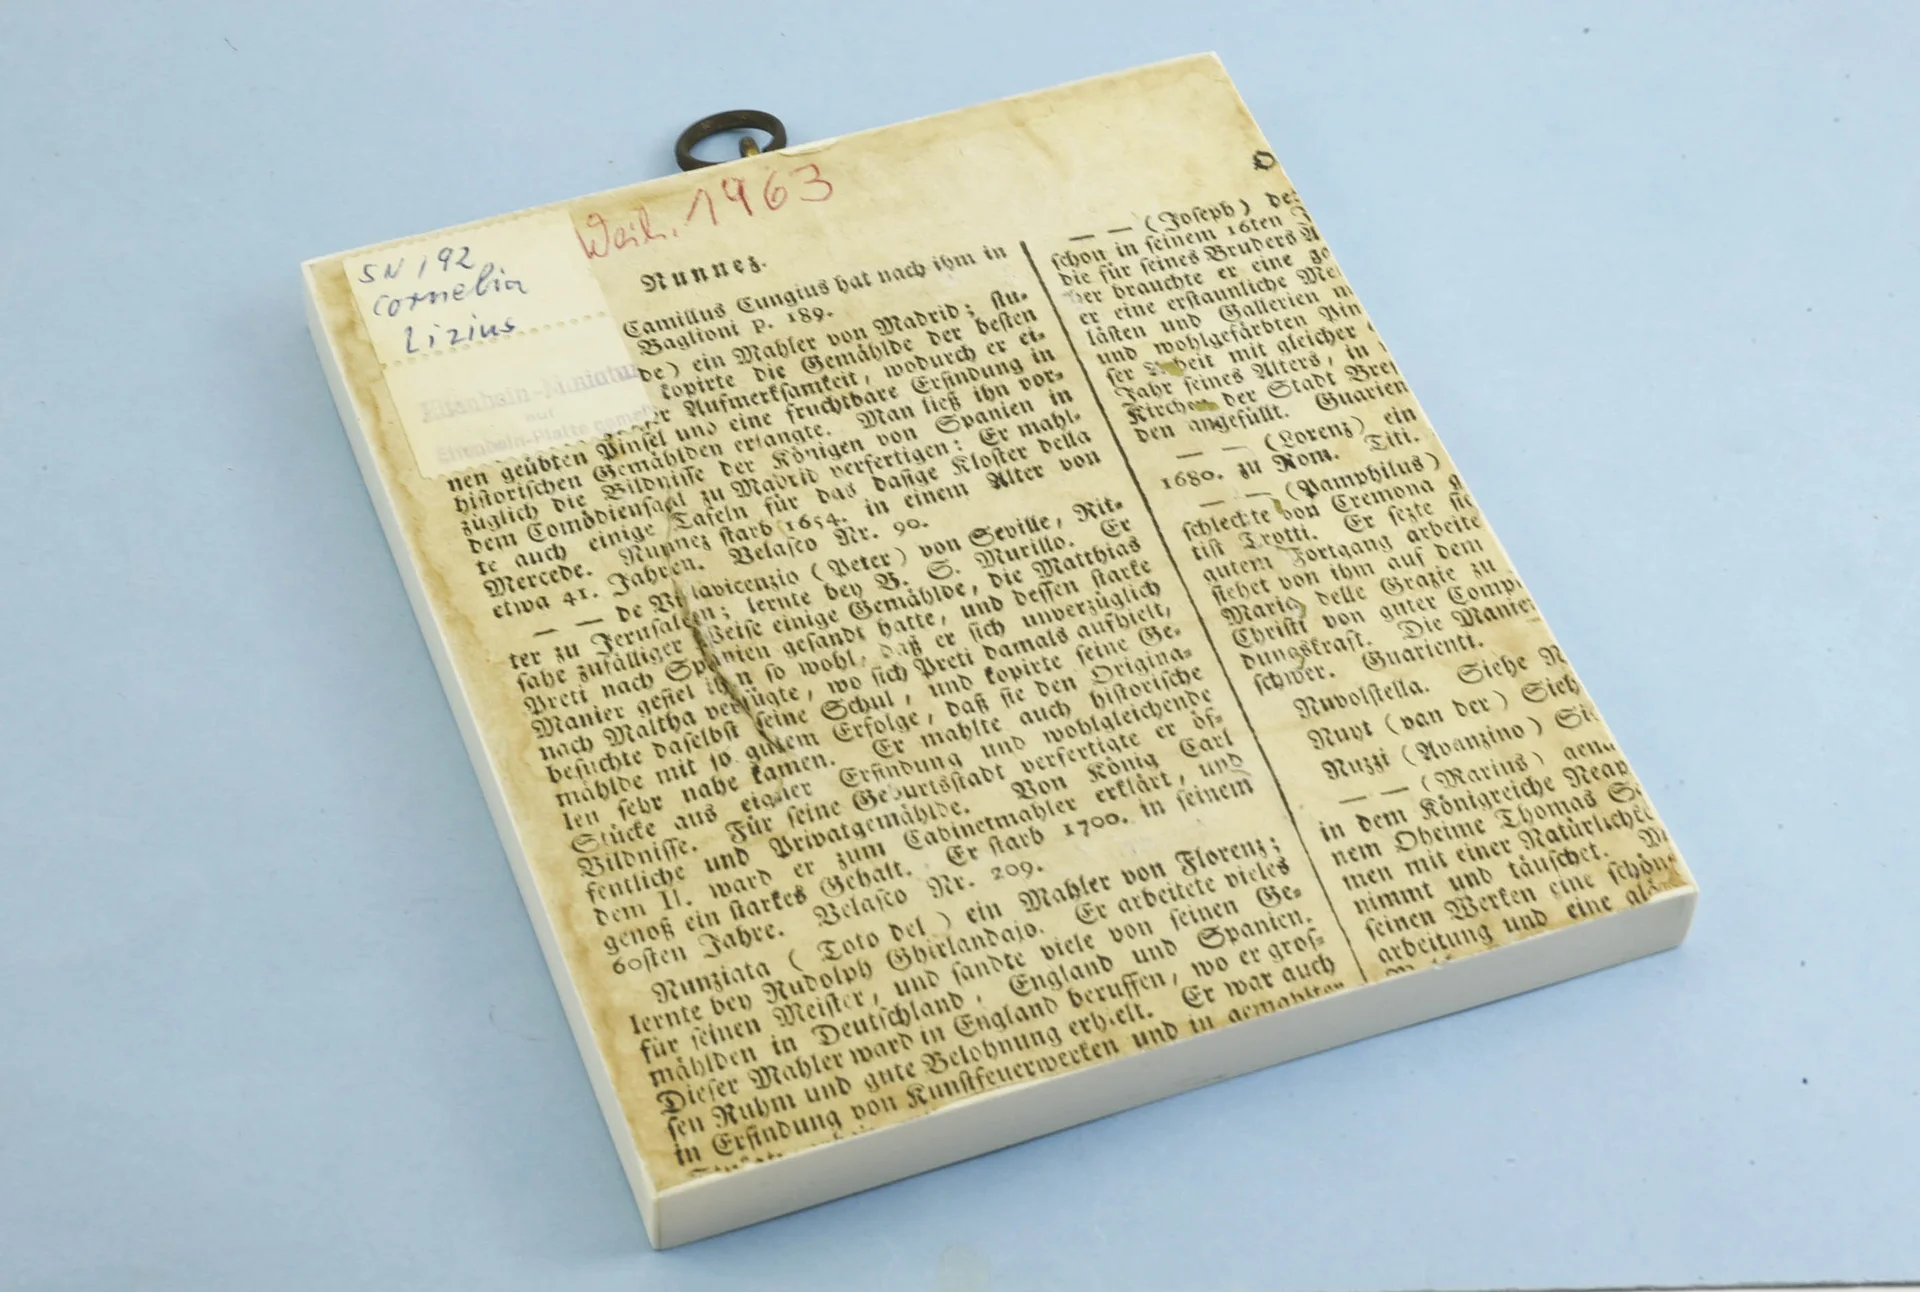 Weih. 1963
SN 192
Cornelia
Lizius
Elfenbein-Miniatur
auf
Elfenbein-Platte gemalt
Nunnez.
Camillus Cungius hat nach ihm in
Baglioni p. 189.
de) ein Mahler von Madrid; stu-
kopirte die Gemählde der besten
Aufmerksamkeit, wodurch er ei-
nen geübten Pinsel und eine fruchtbare Erfindung in
historischen Gemählden erlangte. Man ließ ihn vor-
züglich die Bildnisse der Königen von Spanien in
dem Comödiensaal zu Madrid verfertigen: Er mahl-
te auch einige Tafeln für das dasige Kloster della
Mercede. Nunnez starb 1654. in einem Alter von
etwa 41. Jahren. Velasco Nr. 90.
— — de Villavicenzio (Peter) von Seville, Rit-
ter zu Jerusalem; lernte bey B. S. Murillo. Er
sahe zufälliger Weise einige Gemählde, die Matthias
Preti nach Spanien gesandt hatte, und dessen starke
Manier gefiel ihm so wohl, daß er sich unverzüglich
nach Maltha verfügte, wo sich Preti damals aufhielt,
besuchte daselbst seine Schul, und kopirte seine Ge-
mählde mit so gutem Erfolge, daß sie den Origina-
len sehr nahe kamen. Er mahlte auch historische
Stücke aus eigner Erfindung und wohlgleichende
Bildnisse. Für seine Geburtsstadt verfertigte er öf-
fentliche und Privatgemählde. Von König Carl
dem II. ward er zum Cabinetmahler erklärt, und
genoß ein starkes Gehalt. Er starb 1700. in seinem
60sten Jahre. Velasco Nr. 209.
Nunziata (Toto del) ein Mahler von Florenz;
lernte bey Rudolph Ghirlandajo. Er arbeitete vieles
für seinen Meister, und sandte viele von seinen Ge-
mählden in Deutschland, England und Spanien.
Dieser Mahler ward in England beruffen, wo er gros-
sen Ruhm und gute Belohnung erhielt. Er war auch
in Erfindung von Kunstfeuerwerken und in gemahlten
— — (Joseph) de
schon in seinem 16ten J
die für seines Bruders A
her brauchte er eine go
er eine erstaunliche Me
lästen und Gallerien m
und wohlgefärbten Pin
ser Arbeit mit gleicher
Jahr seines Alters, in
Kirchen der Stadt Bre
den angefüllt. Guarien
— — (Lorenz) ein
1680. zu Rom. Titi.
— — (Pamphilus)
schlechte von Cremona g
tist Trotti. Er sezte sie
gutem Fortgang arbeite
stehet von ihm auf dem
Maria delle Grazie zu
Christi von guter Comp
dungskraft. Die Manie
schwer. Guarienti.
Nuvolstella. Siehe N
Nuyt (van der) Sieh
Nuzzi (Avanzino) Si
— — (Marius) gen
in dem Königreiche Neap
nem Oheime Thomas S
men mit einer Natürliche
nimmt und täuschet.
seinen Werken eine schön
arbeitung und eine glä